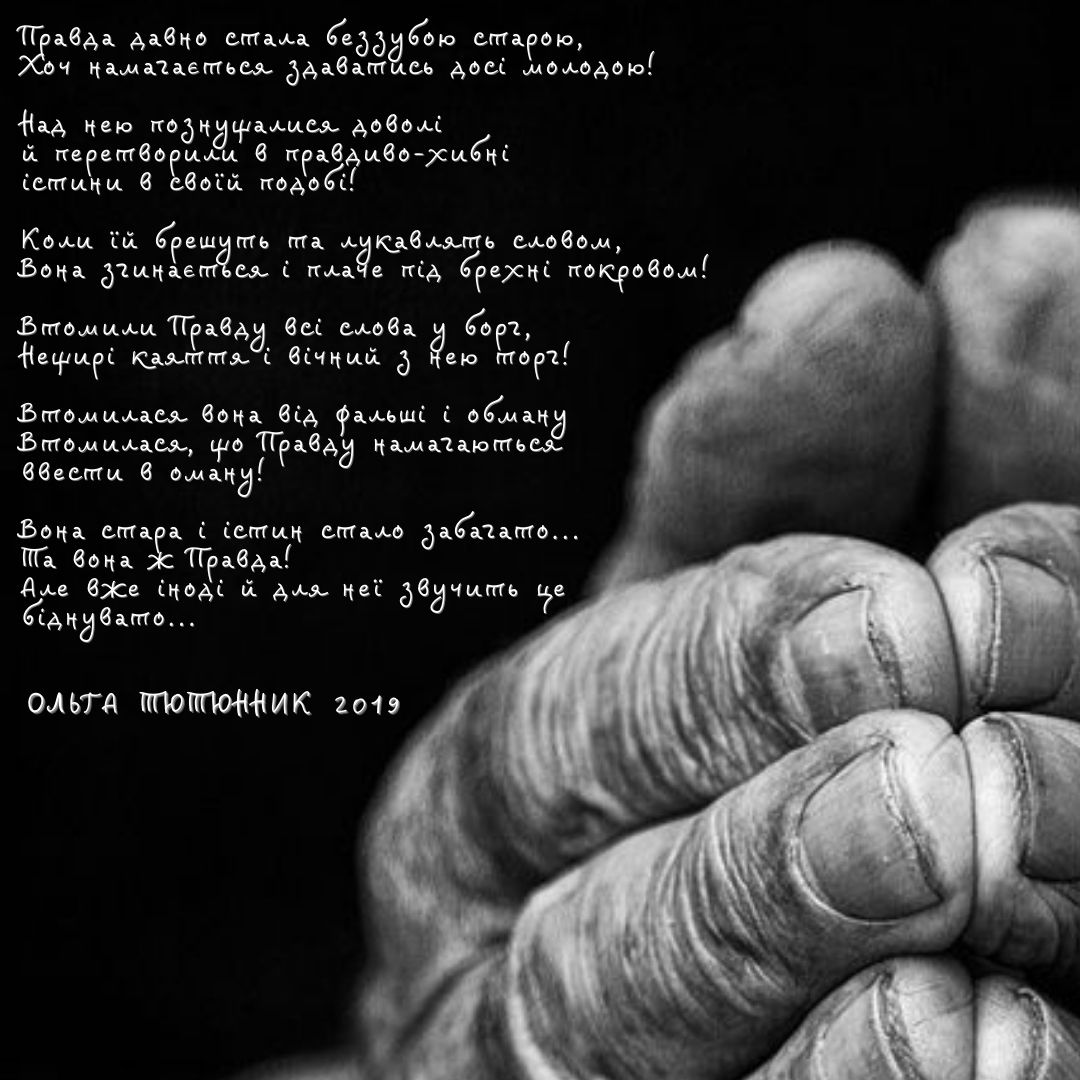 Правда давно стала беззубою старою,
Хоч намагається здаватись досі молодою!
Над нею познущалися доволі
й перетворили в правдиво-хибні
істини в своїй подобі!
Коли їй брешуть та лукавлять словом,
Вона згинається і плаче під брехні покровом!
Втомили Правду всі слова у борг,
Нещирі каяття і вічний з нею торг!
Втомилася вона від фальші і обману
Втомилася, що Правду намагаються
ввести в оману!
Вона стара і істин стало забагато...
Та вона ж Правда!
Але вже іноді й для неї звучить це
біднувато...
ОЛЬГА ТЮТЮННИК 2019